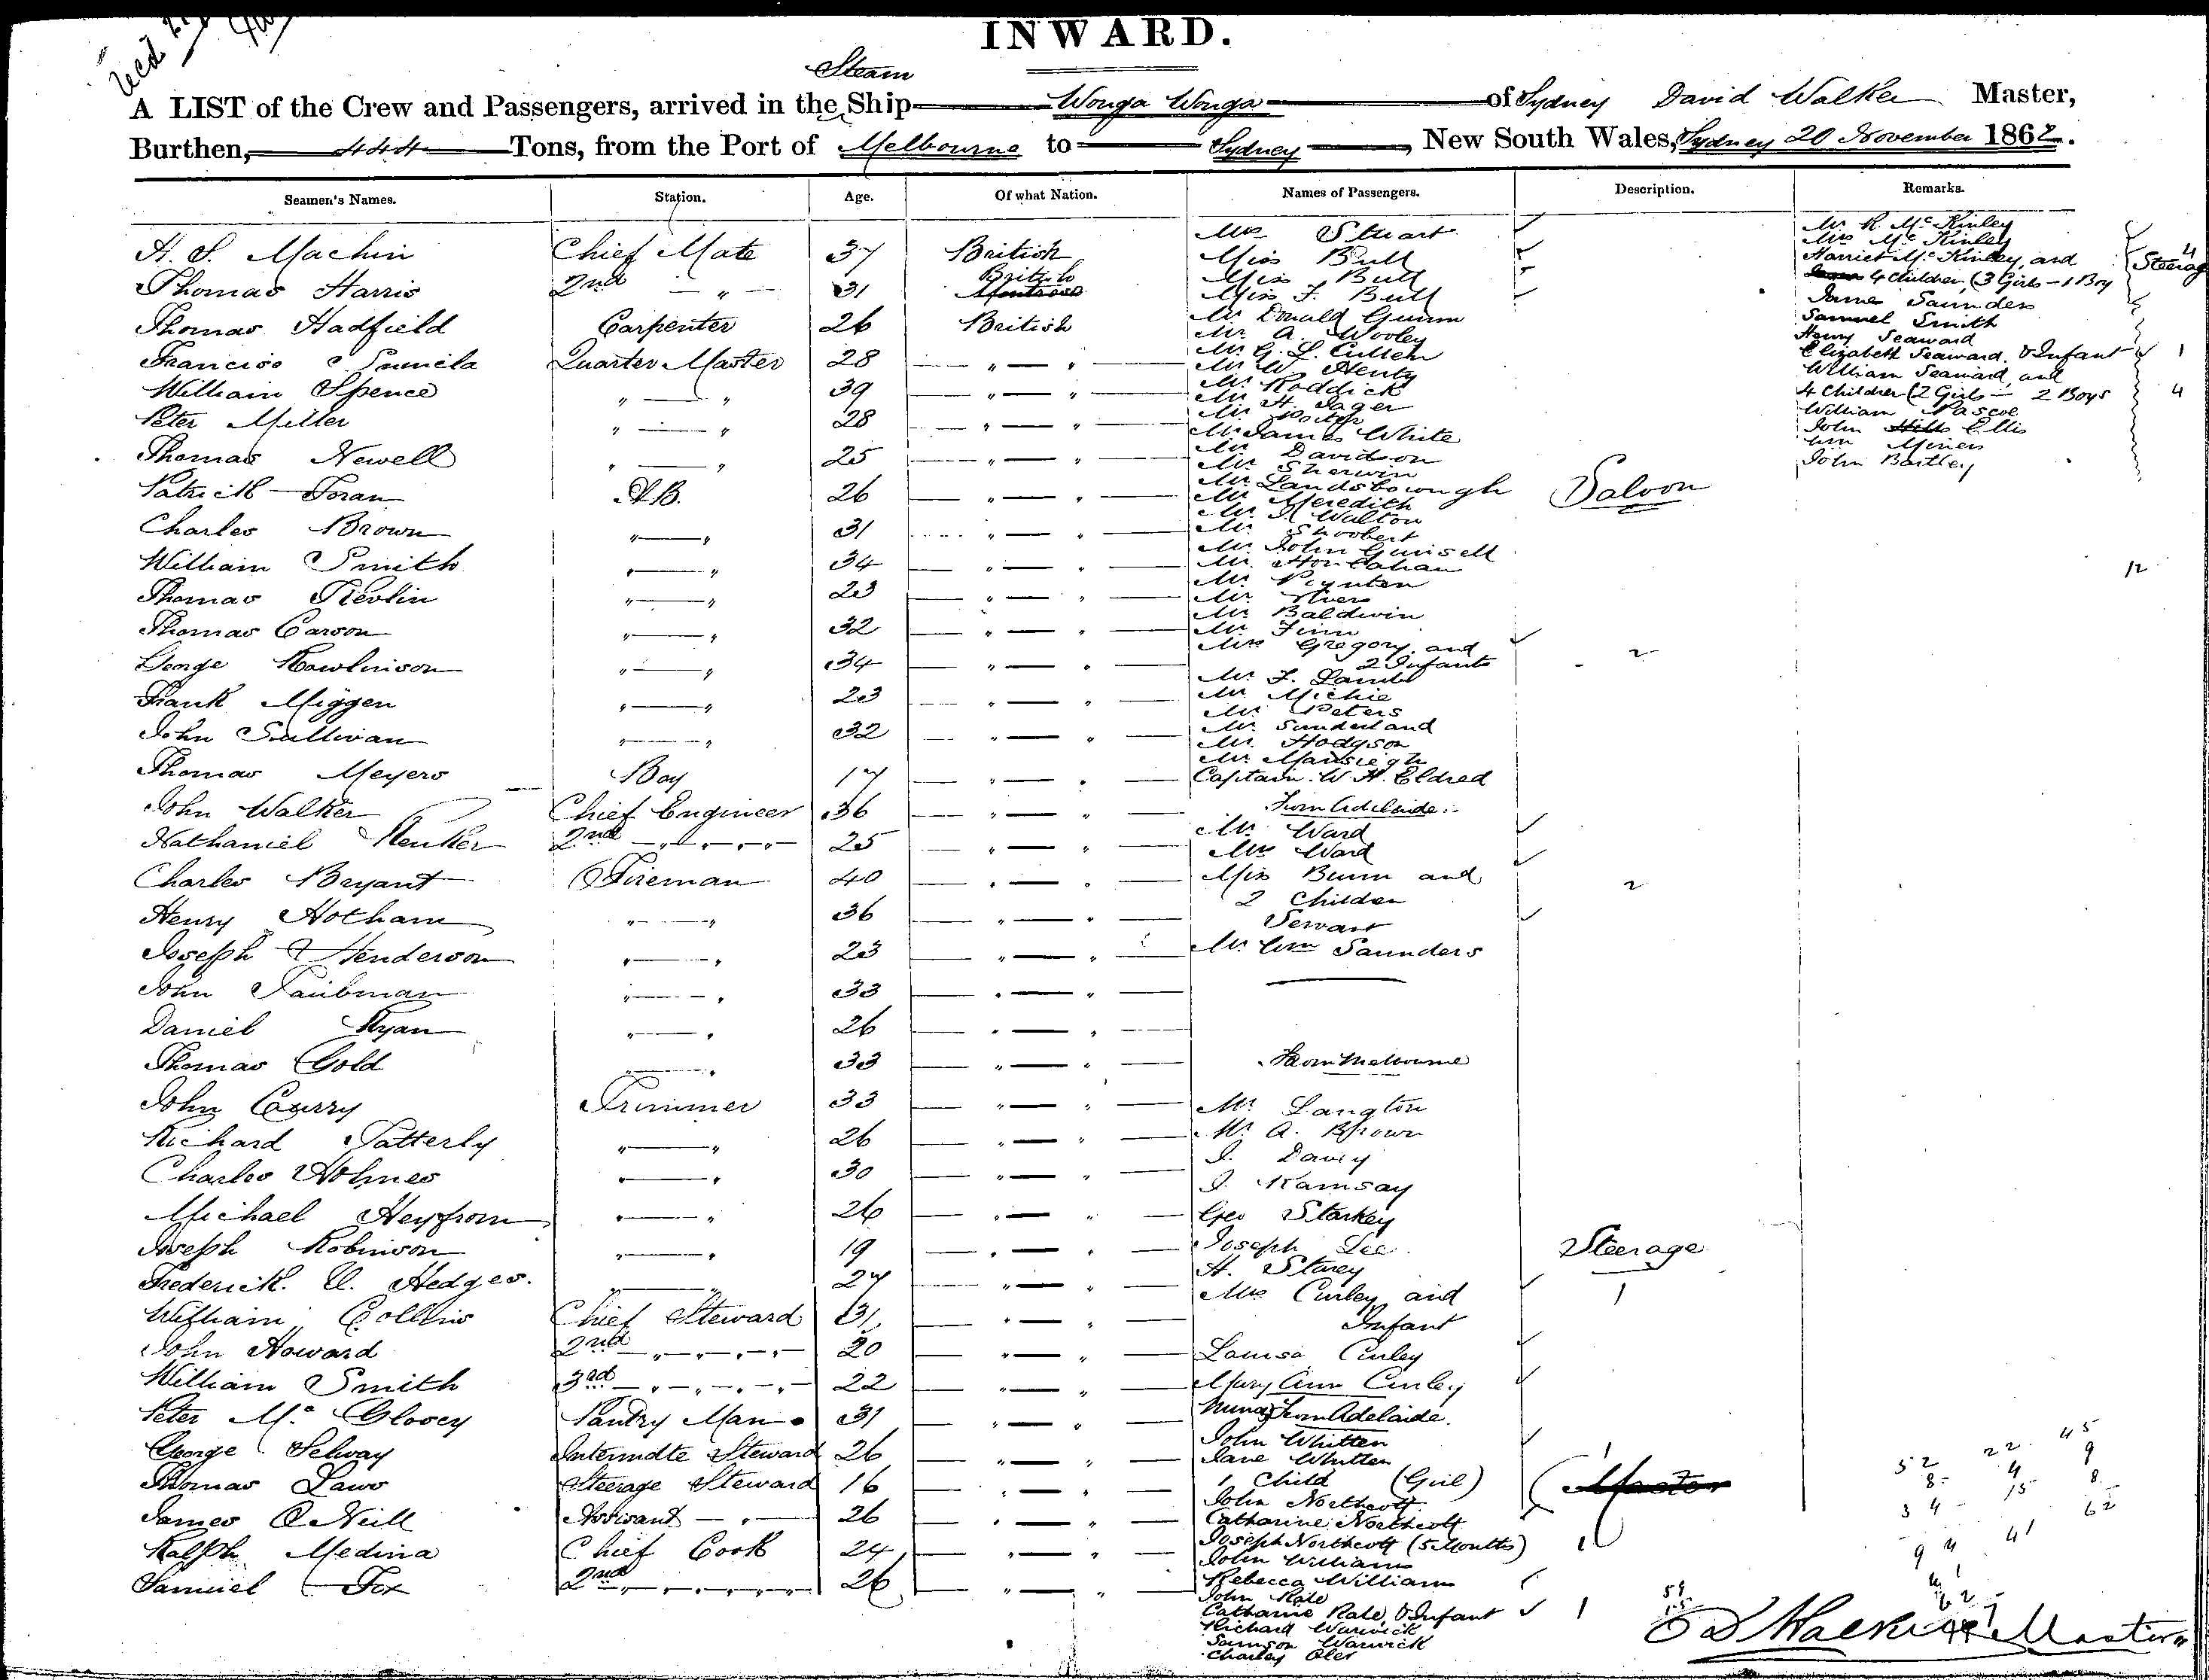 INWARD.
Steam
A LIST of the Crew and Passengers, arrived in the Ship Wonga Wonga of Sydney David Walker Master,
Burthen, 444 Tons, from the Port of Melbourne to Sydney, New South Wales, Sydney 20 November 1862.
Seamen's Names. Station. Age. Of what Nation. Names of Passengers. Description. Remarks.
H. S. Machin Chief Mate 37 British
Thomas Harris 2nd — " — 31 British
Thomas Hadfield Carpenter 26 British
Francisco Quarter Master 28 — " — "
William Spence " — " 39 — " — "
Peter Miller " — " 28 — " — "
Thomas Newell " — " 25 — " — "
Patrick Foran A.B. 26 — " — "
Charles Brown " — " 31 — " — "
William Smith " — " 34 — " — "
Thomas " — " 23 — " — "
Thomas Carson " — " 32 — " — "
George Rowlinson " — " 34 — " — "
Frank Miggen " — " 23 — " — "
John Sullivan " — " 32 — " — "
Thomas Meyers Boy 17 — " — "
John Walker Chief Engineer 36 — " — "
Nathaniel 2nd — " — " 25 — " — "
Charles Bryant Fireman 40 — " — "
Henry Hotham " — " 36 — " — "
Joseph Henderson " — " 23 — " — "
John Taubman " — " 33 — " — "
Daniel Ryan " — " 26 — " — "
Thomas Gold " — " 33 — " — "
John Curry Trimmer 33 — " — "
Richard Satterly " — " 26 — " — "
Charles Holmes " — " 30 — " — "
Michael " — " 26 — " — "
Joseph Robinson " — " 19 — " — "
Frederick. Hedges. " — " 27 — " — "
William Collins Chief Steward 31 — " — "
John Howard 2nd — " — " 20 — " — "
William Smith 3rd — " — " 22 — " — "
Peter Mc Pantry Man 31 — " — "
George Selway Intermdte Steward 26 — " — "
Thomas Laws Steerage Steward 16 — " — "
James O'Neill Assistant — " — 26 — " — "
Ralph Medina Chief Cook 24 — " — "
Samuel Fox 2nd — " — " 26 — " — "
Mrs Stuart
Miss Bull
Miss Bull
Miss F. Bull
Mr Donald Gunn
Mr. A. Wooley
Mr. G. L. Cullen
Mr W. Henty
Mr. Roddick
Mr H. Sager
Mr
Mr James White
Mr Davidson
Mr Sherwin
Mr Landsborough
Mr Meredith
Mr. Walton
Mr. Shoobert
Mr. John
Mr. Hon
Mr. Poynten
Mr
Mr Baldwin
Mr Finn
Mrs Gregory and
2 Infants
Mr. F.
Mr Michie
Mr Peters
Mr. Sunderland
Mr. Hodgson
Mr
Captain W. H. Eldred
Saloon
2
From Adelaide.
Mr. Ward
Mrs Ward
Miss Bunn and
2 Children
2
Servant
Mr. Wm Saunders
From Melbourne
Mr. Langton
Mr. A. Brown
J. Davey
J. Ramsay
Geo Starkey
Joseph Lee
H. Starey
Steerage
Mrs Curley and
Infant
1
Louisa Curley
Mary Ann Curley
From Adelaide.
John Whitten
Jane Whitten
1 Child (Girl)
John Northcott
Catharine Northcott
Joseph Northcott (5 Months)
John Williams
Rebecca Williams
John Rale
Catharine Rale & Infant 1
Richard Warwick
Samson Warwick
Charley
Mr. R. McKinley
Mrs McKinley
Harriet McKinley, and
4 Children (3 Girls - 1 Boy
Steerage
4
Jane Saunders
Samuel Smith
Henry Seaward
Elizabeth Seaward & Infant 1
William Seaward, and
4 Children (2 Girls - 2 Boys 4
William Pascoe
John Ellis
Wm
John Bartley
12
52 22 45
8 4 9
15 8
34 62
9 4 41
D Walker Master